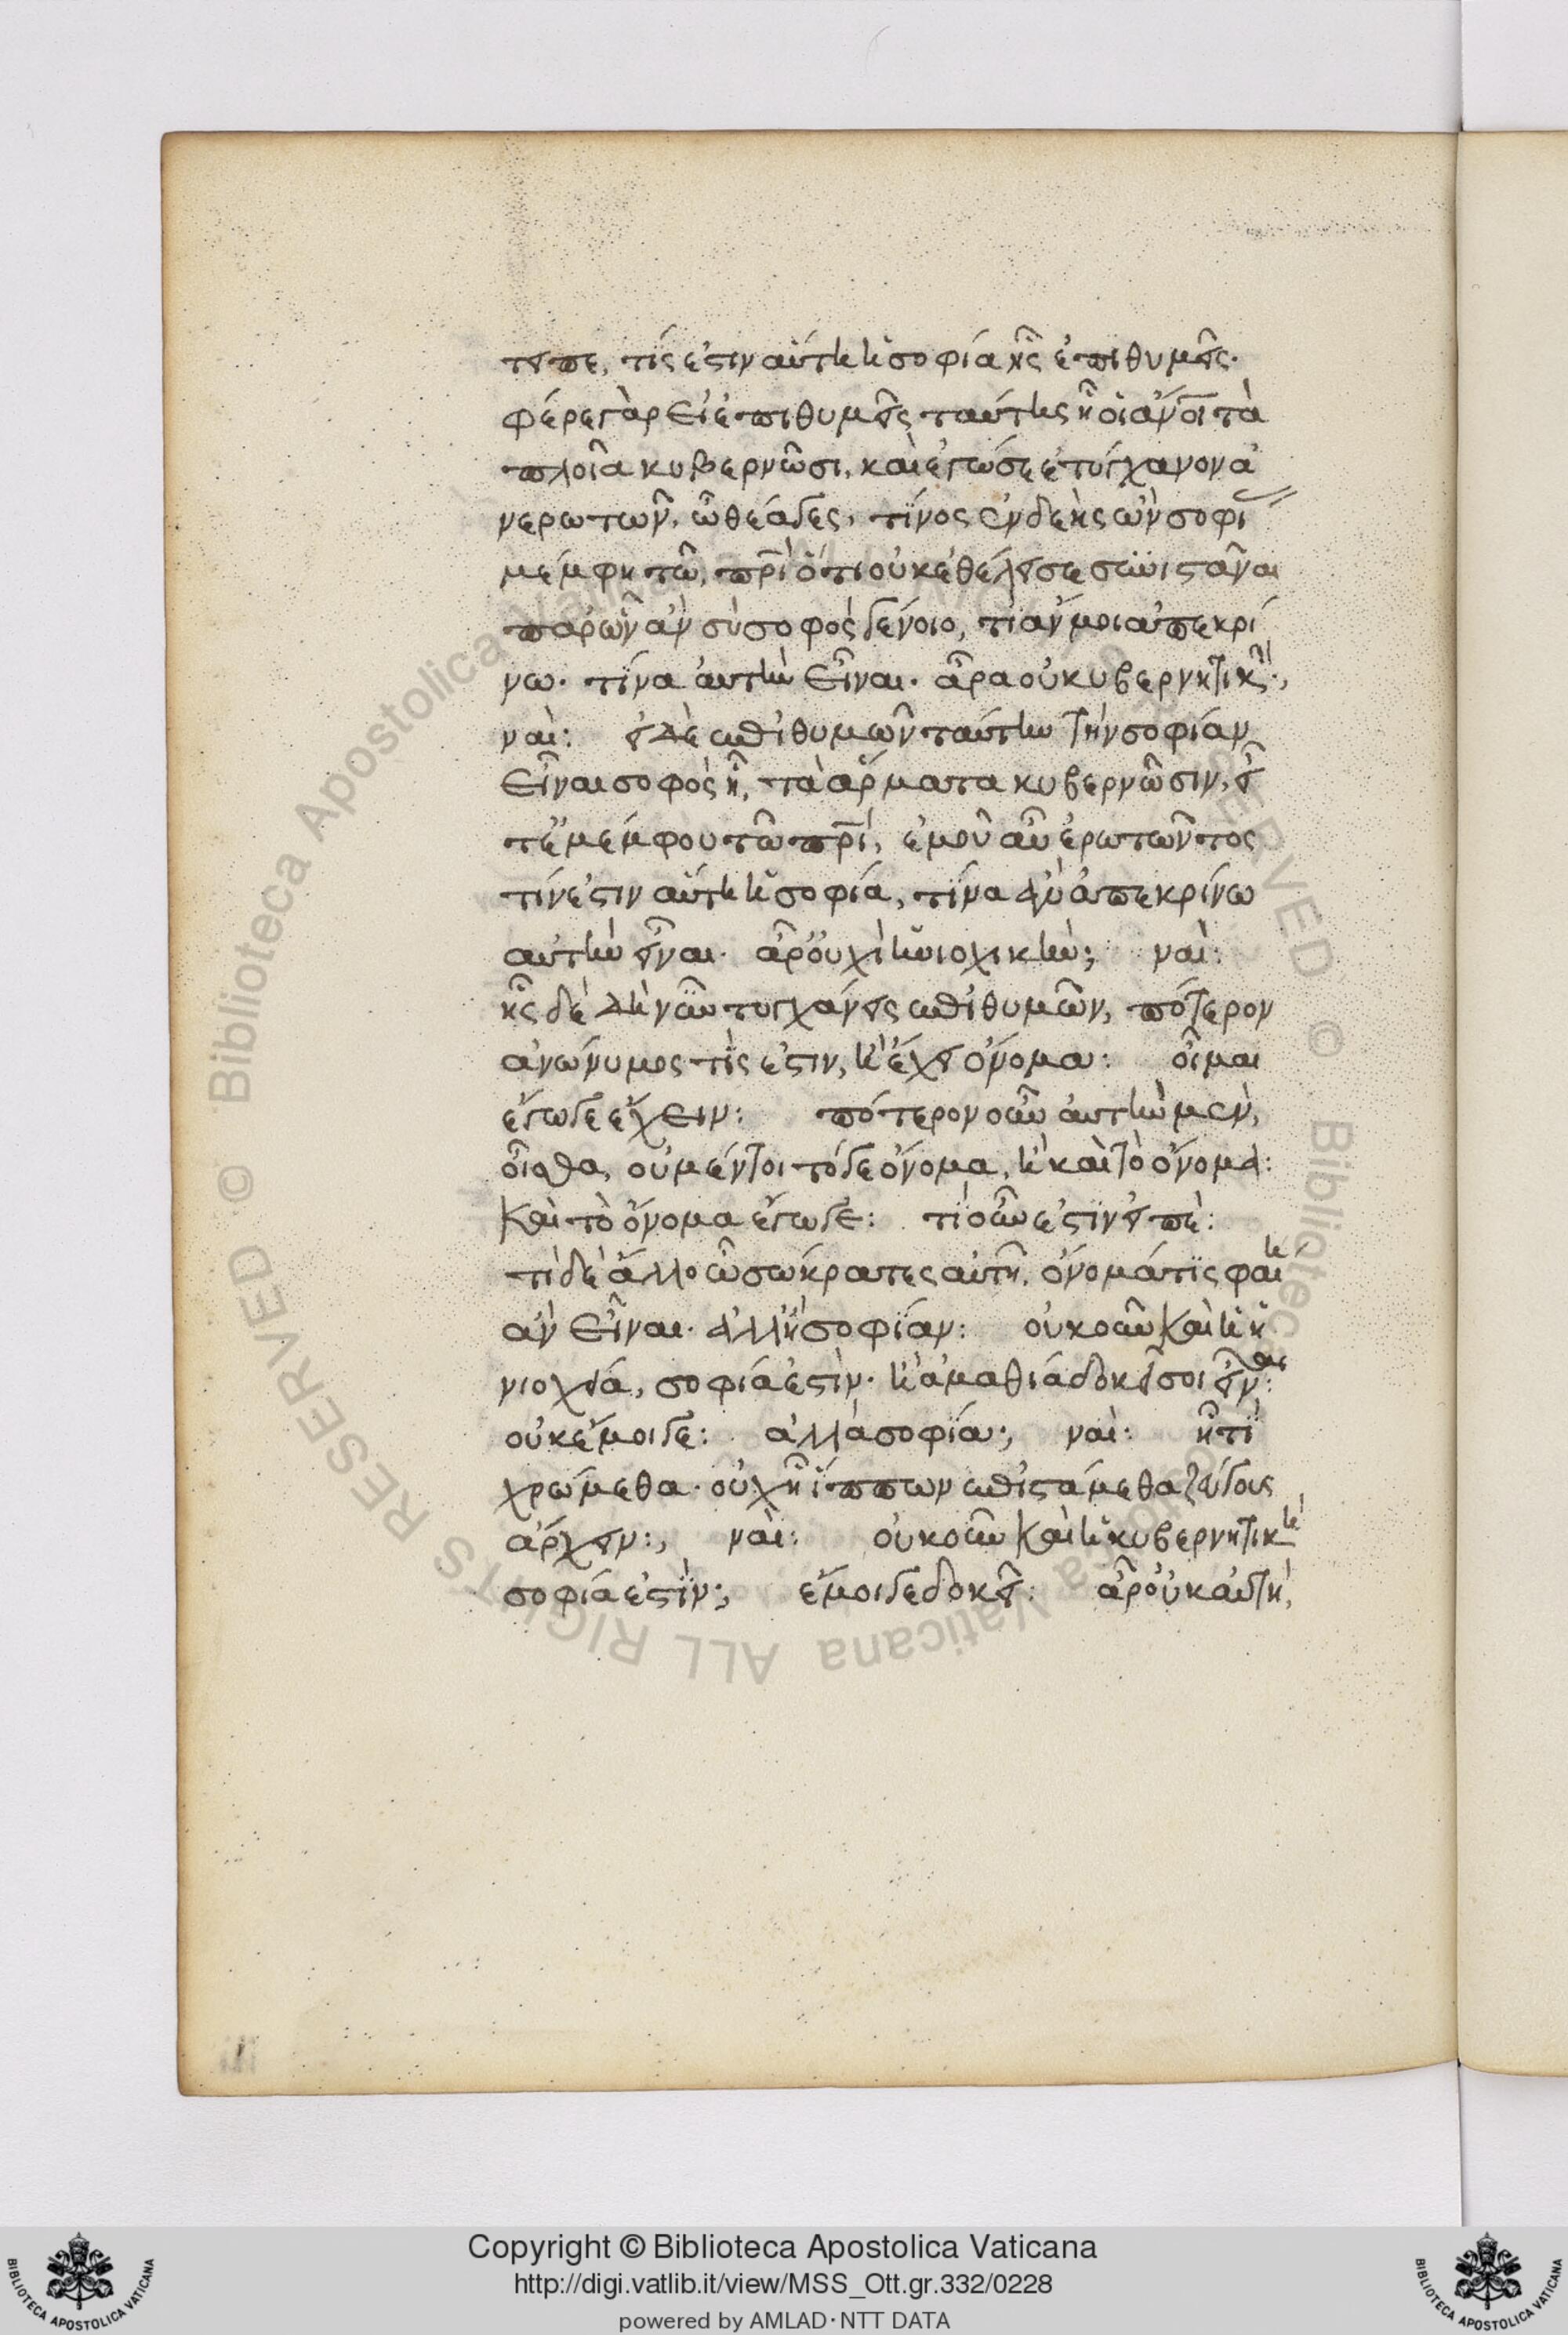 τειπε, τίς ἐστιν αὕτη ἡ σοφία ἧς ἐπιθυμεῖς.
φέρε γὰρ εἰ ἐπιθυμεῖς ταύτης ᾗ οἱ ἄνοι τὰ
πλοῖα κυβερνῶσι, καὶ ἐγώ σε ἐτύγχανον ἀ
νερωτῶν, ὦ θέαγες, τίνος ἐνδεὴς ὢν σοφί
μέμφῃ τῷ πρὶ ὅτι οὐκ ἐθέλει σε συνιστάναι
παρ' ὧν ἂν σὺ σοφὸς γένοιο, τί ἄν μοι ἀπεκρί
νω. τίνα αὐτὴν εἶναι. ἆρα οὐ κυβερνητικὴ;
ναί: εἰ δὲ ἐπιθυμῶν ταύτην τὴν σοφίαν
εἶναι σοφὸς ᾗ, τὰ ἅρματα κυβερνῶσιν, εἶ
τ' ἐμέμφου τῷ πρί, ἐμοῦ αὖ ἐρωτῶντος
τίν ἐστιν αὕτη ἡ σοφία, τίνα ἂν ἀπεκρίνω
αὐτὴν εἶναι. ἆρ' οὐχὶ ἡνιοχικήν; ναί:
ἧς δὲ δὴ νῦν τυγχάνεις ἐπιθυμῶν, πότερον
ἀνώνυμος τίς ἐστιν, ἢ ἔχει ὄνομα: οἶμαι
ἔγωγε ἔχειν: πότερον οὖν αὐτὴν μὲν,
οἶσθα, οὐ μέντοι τόγε ὄνομα, ἢ καὶ τὸ ὄνομα:
Καὶ τὸ ὄνομα ἔγωγε: τί οὖν ἐστὶν εἰπέ:
τί δὲ ἄλλο ὦ σώκρατες αὐτῇ, ὄνομά τις φαί η
ἂν εἶναι. ἀλλ' ἢ σοφίαν: οὐκοῦν Καὶ ἡ ἡ
νιοχεία, σοφία ἐστὶν. ἢ ἀμαθία δοκεῖ σοι εἶναι:
οὐκ ἔμοιγε: ἀλλὰ σοφία; ναί: ᾗ τί
χρώμεθα. οὐχ ᾗ ἵππων ἐπιστάμεθα ζεύγους
ἄρχειν:, ναί: οὐκοῦν Καὶ ἡ κυβερνητικὴ
σοφία ἐστίν; ἔμοιγε δοκεῖ: ἆρ' οὐκ αὕτη,
Copyright © Biblioteca Apostolica Vaticana
http://digi.vatlib.it/view/MSS_Ott.gr.332/0228
powered by AMLAD·NTT DATA